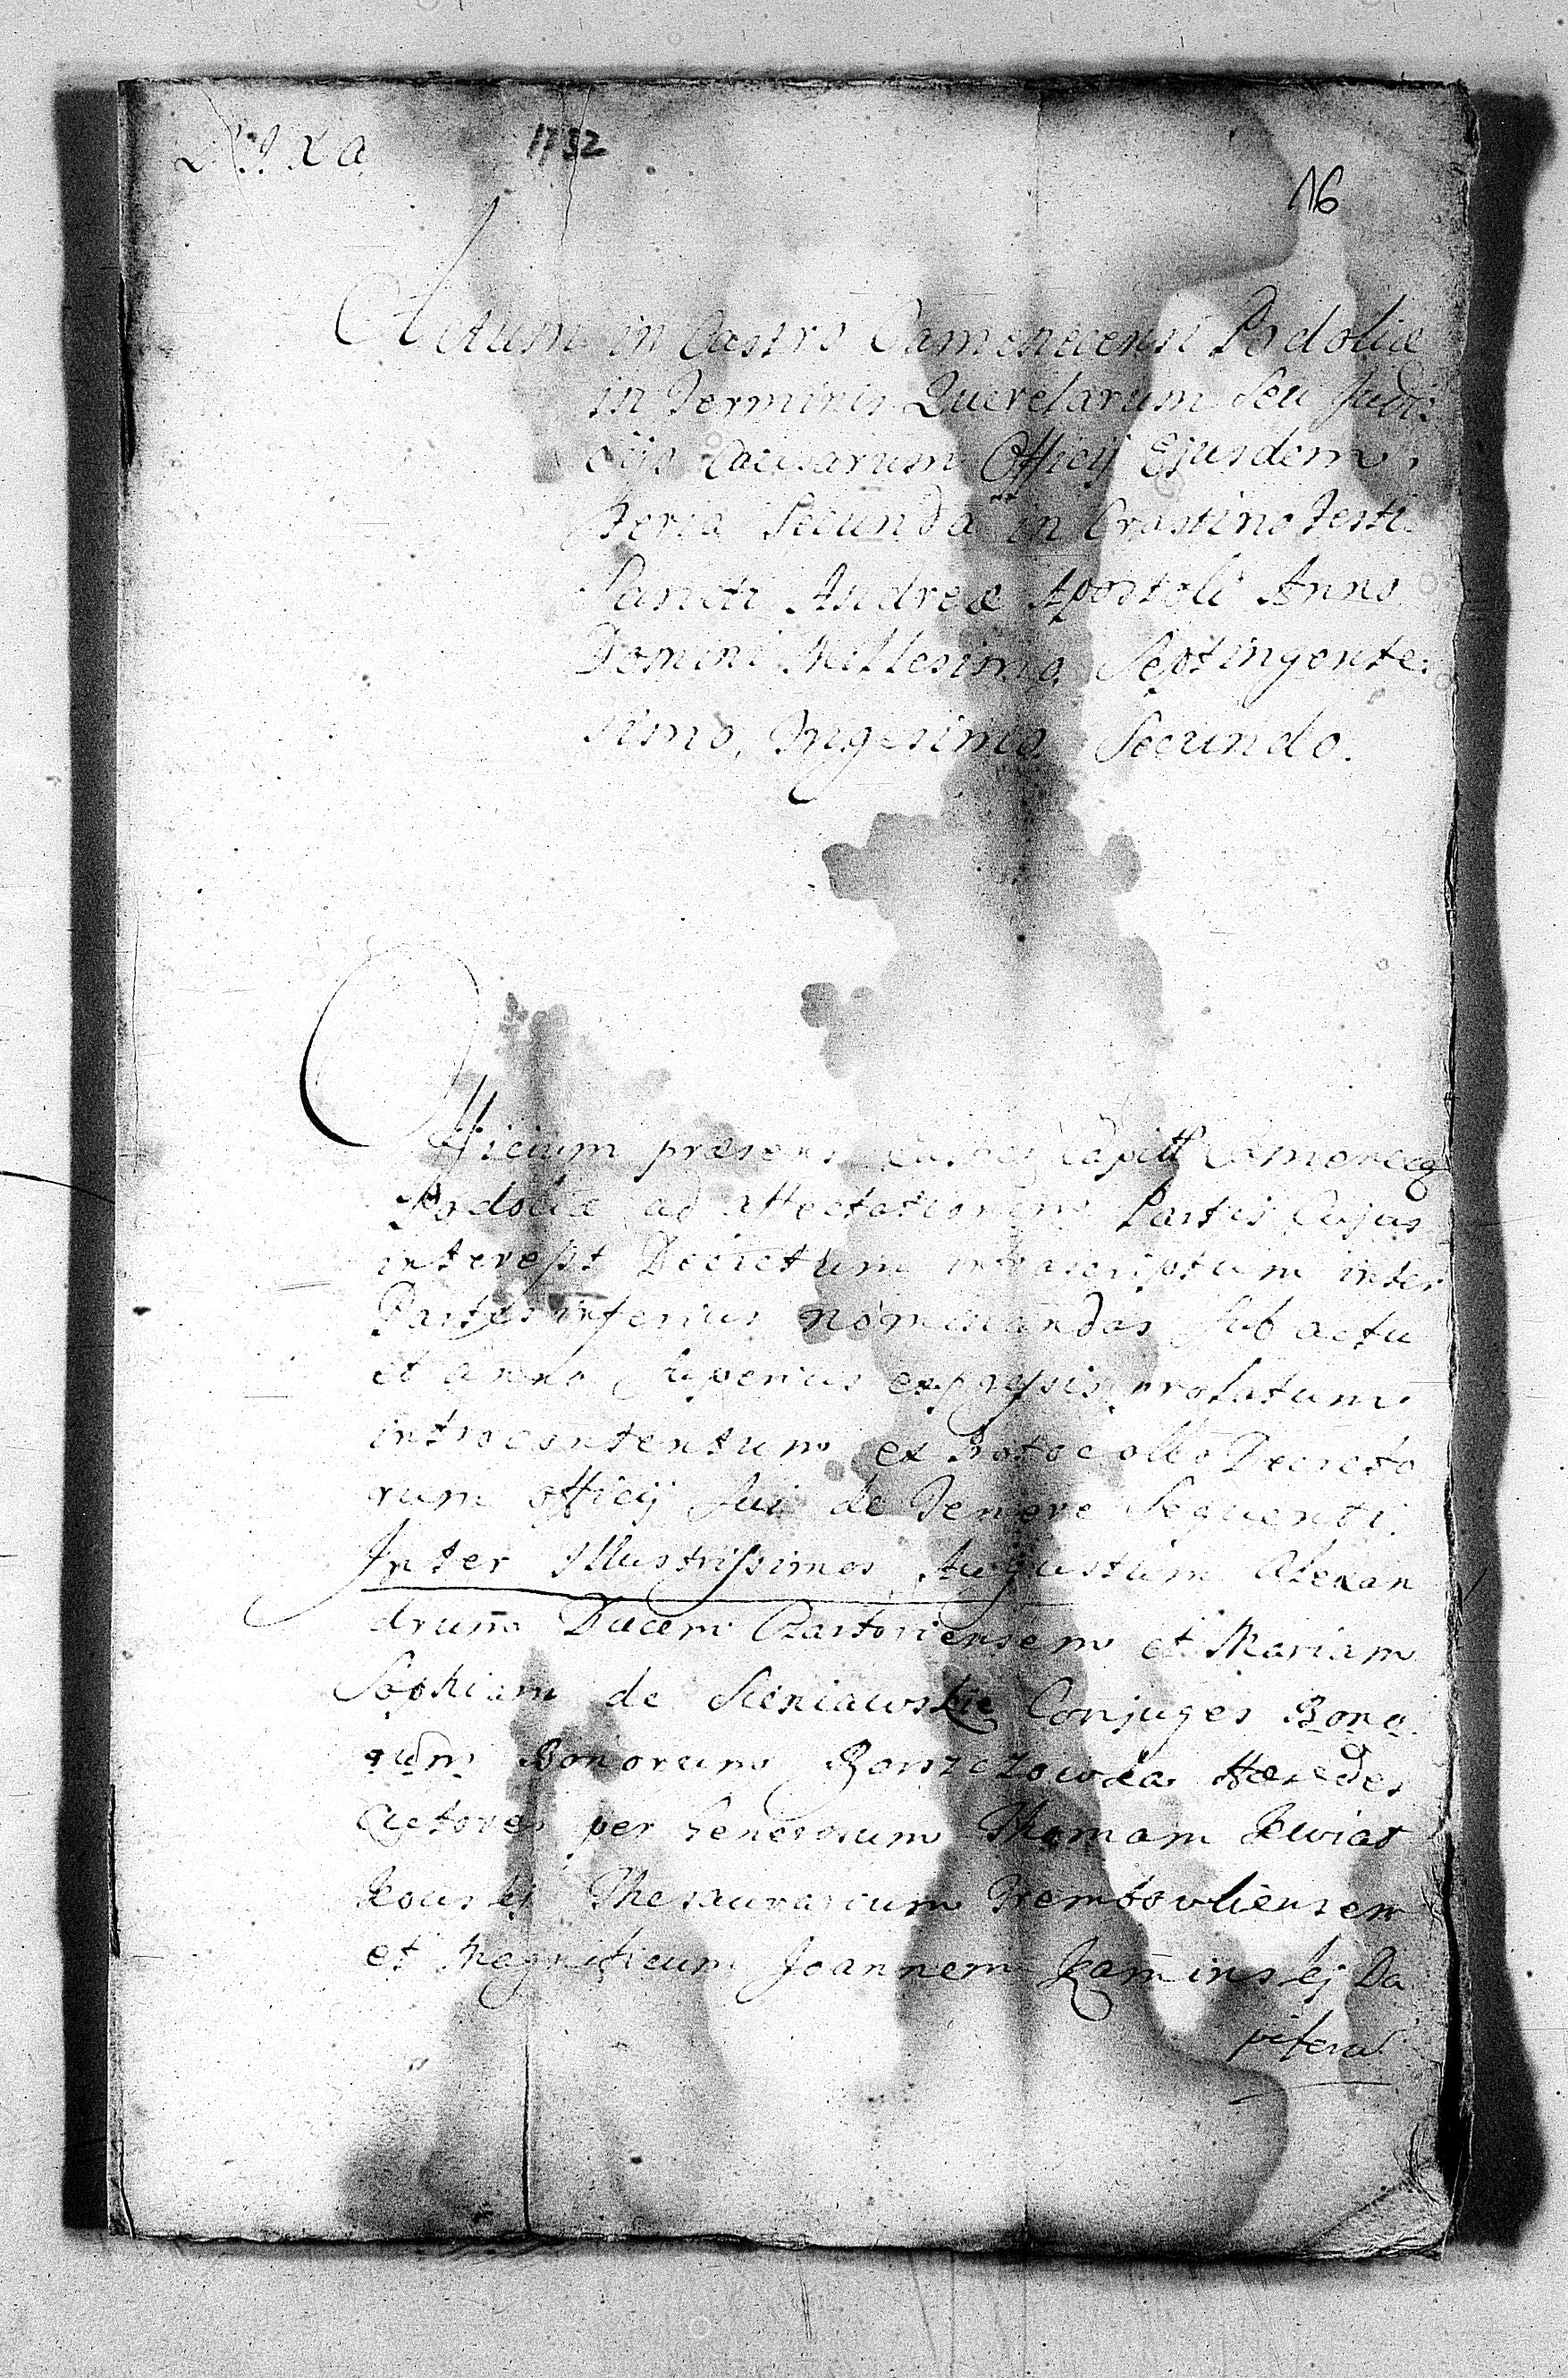 1732
16
Actum in Castro Camenecensi Podoliæ
in Terminis Querelarum Seu Judi:
cijs Causarum Officij Ejusdem,
Feria Secunda in Crastino Festi
Sancti Andreæ Apostoli Anno
Domini Millesimo Septingente:
simo, Trigesimo Secundo.
Officium præsens Castren Capitt Camenecen
Podoliæ ad affectationem Partis Cujus
interest Decretum infrascriptum inter
Partes inferius nominandas Sub actu
et anno Superius expressis prolatum
introcontentum ex Protocollo Decreto
rum officij Sui de Tenore Sequenti.
Inter Illustrissimos Augustum Alexan
drum Ducem Czartoriensem et Mariam
Sophiam de Sieniawskie Conjuges Bono
rum Bonorum Hæredes
Actores per Generosum Thomam Kwiat
kowskj Thesaurarium Trembovliensem
et Magnificum Joannem Kaminskj Da
piferum